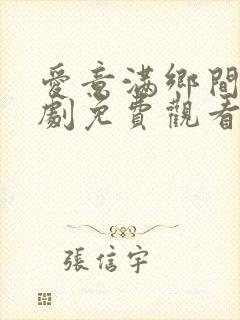 愛意滿鄉間
劇免費觀看
張信宇